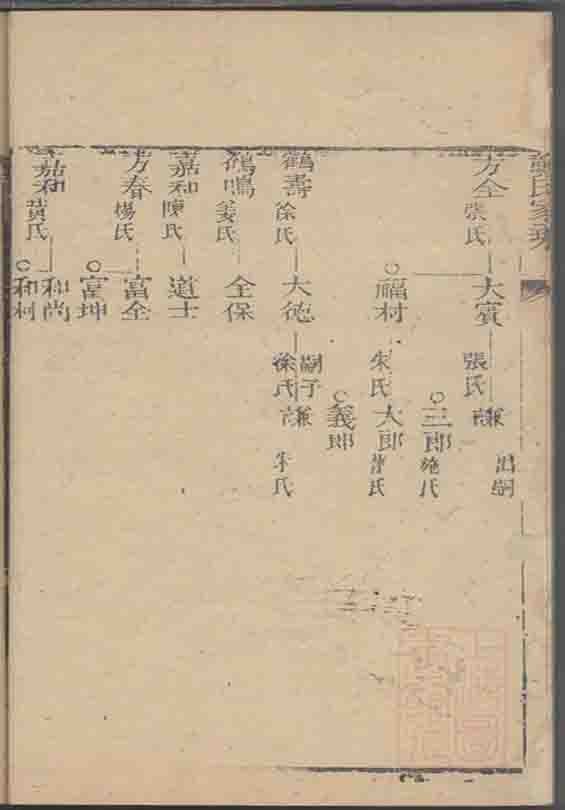 氏家乘
方全 張氏 大賓 張氏 謙 出嗣
三郎 施氏
福村 朱氏 大郎 曹氏
義郎
鶴壽 徐氏 大德 徐氏 嗣子 謙 朱氏
鶴鳴 姜氏 全保
嘉和 陳氏 道士
方春 楊氏 富全
富坤
嘉和 黃氏 和尚
和村